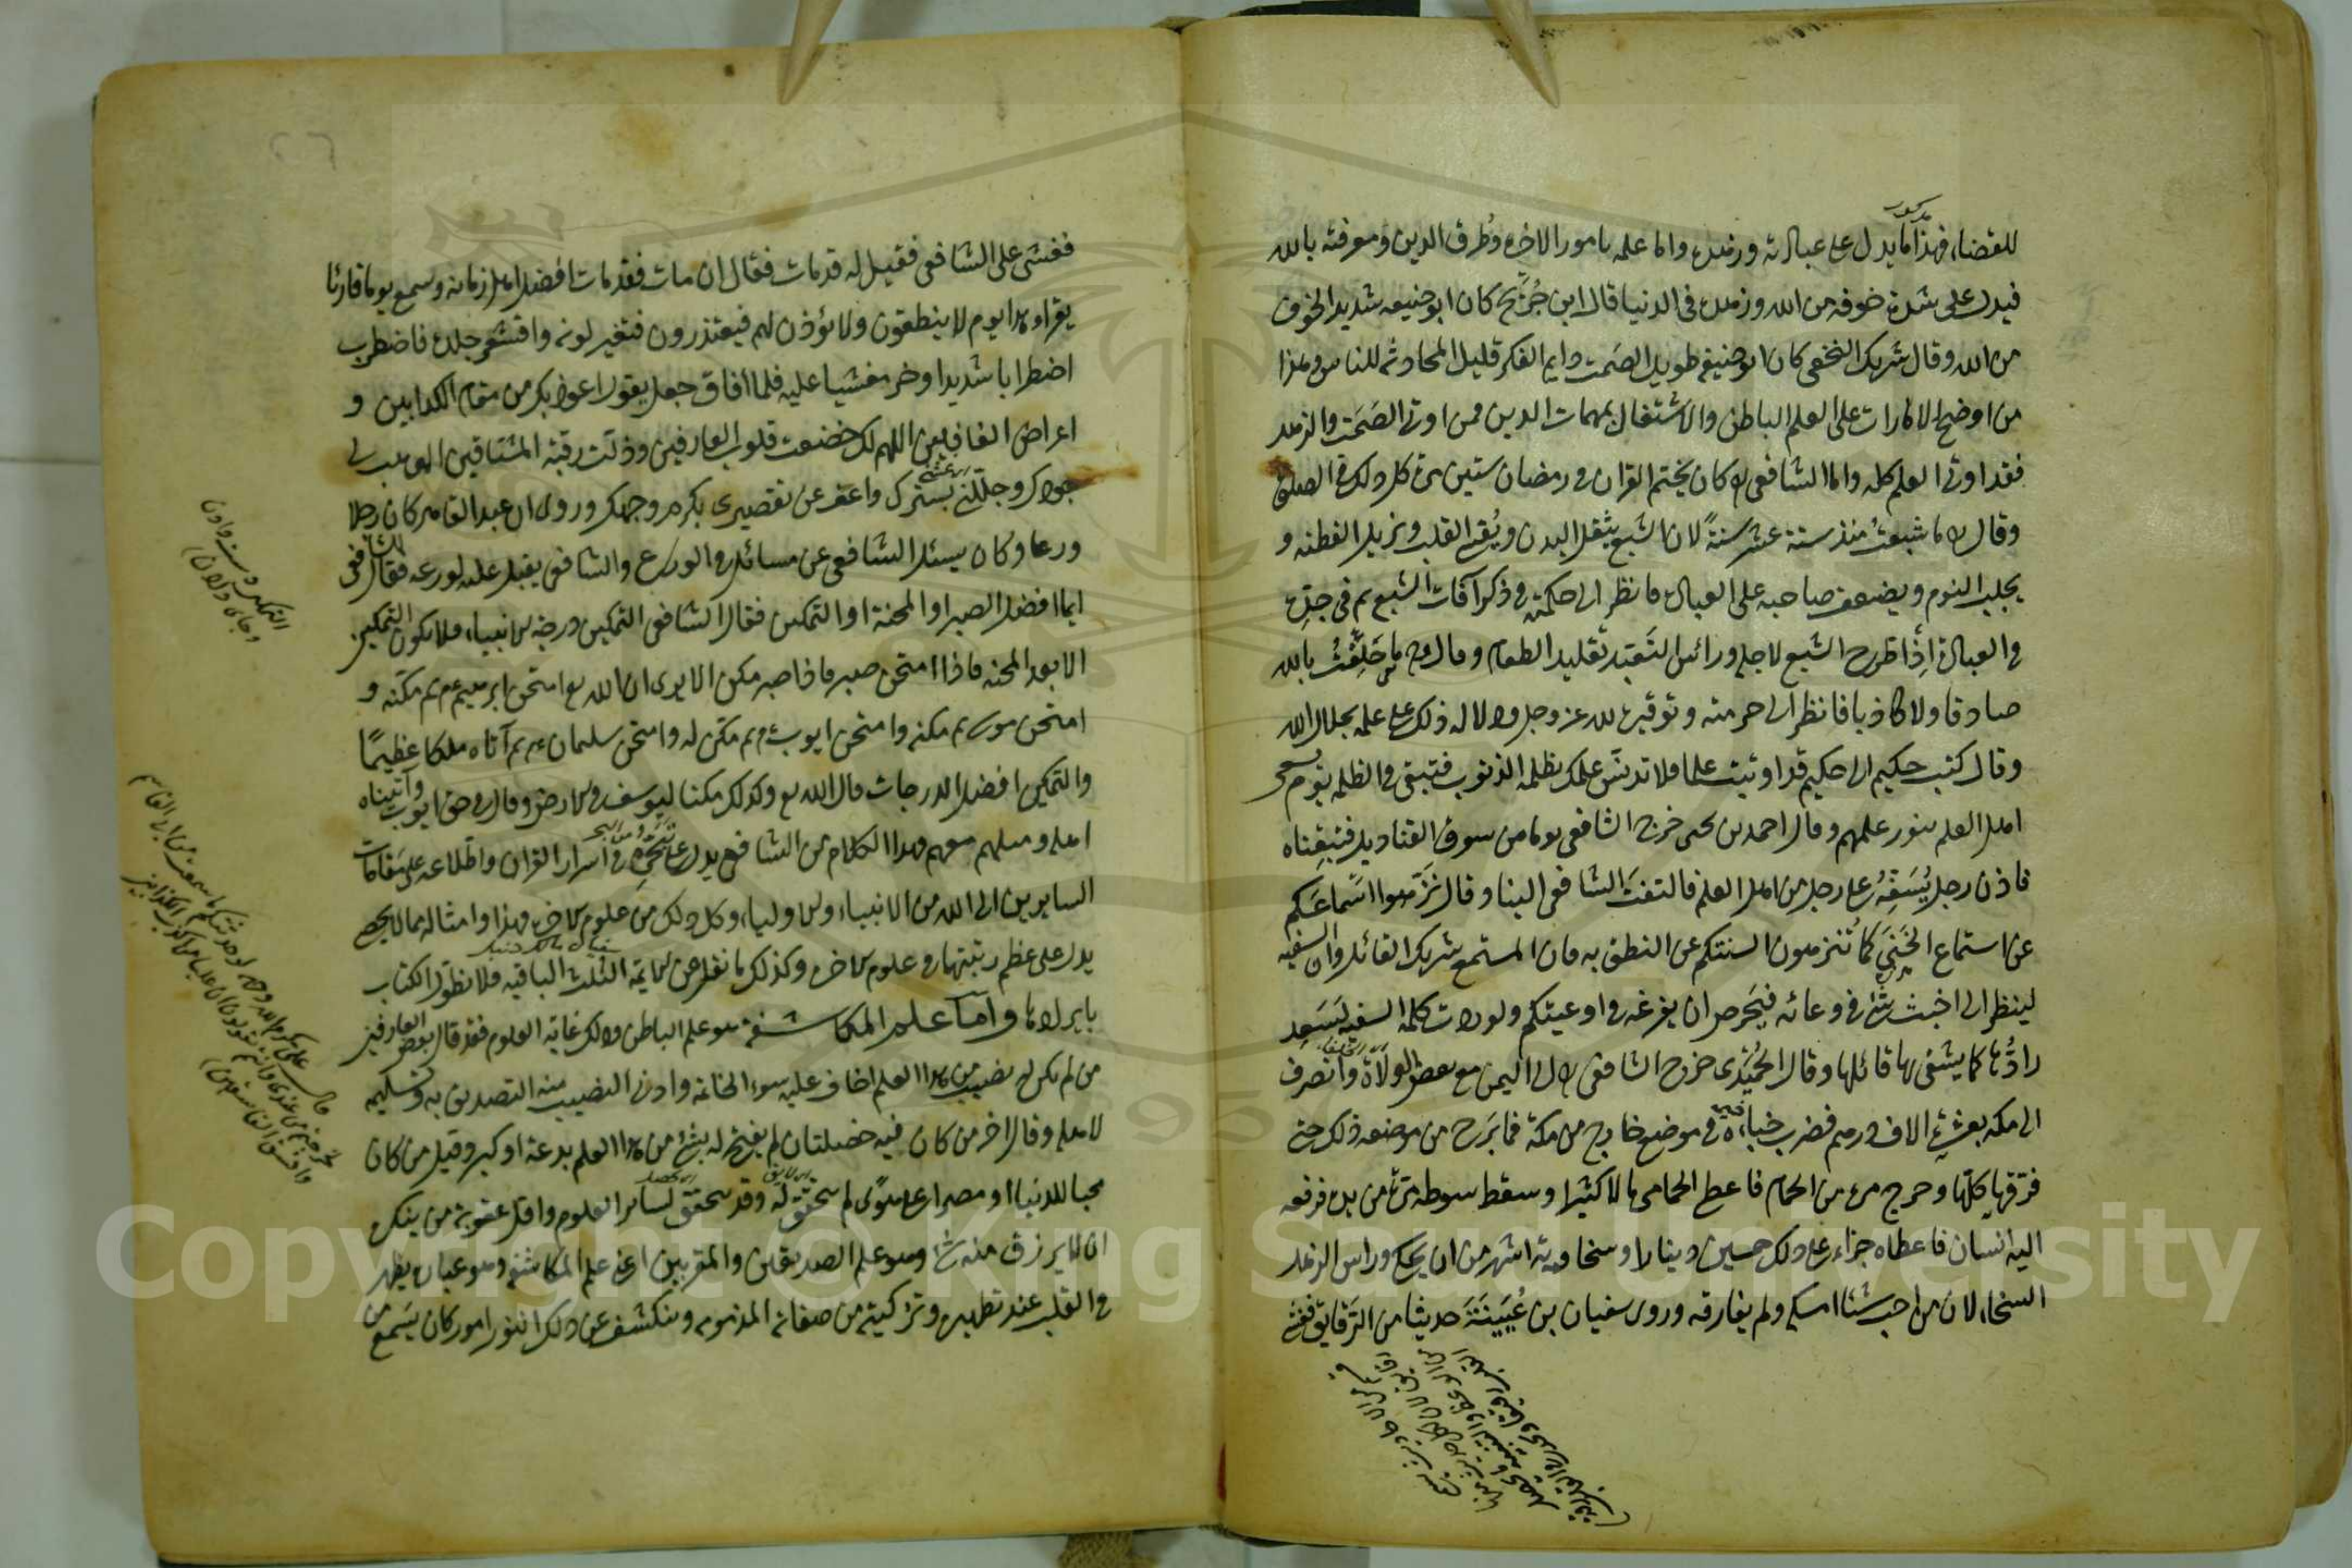 للقضاء فهذا ما يدل على عبادته وزهده واما علمه بامور الاخره وطرق الدين ومعرفته بالله
فيدل على شدة خوفه من الله وزهده فى الدنيا قال ابن جُرَيج كان ابو حنيفه شديد الخوف
من الله وقال شريك النخعى كان ابو حنيفه طويل الصَمت دايم الفكر قليل المحادثه للناس وهذا
من اوضح الامارات على العلم الباطن والاشتغال بمهمات الدين فمن اوتى الصَمَت والزهد
فقد اوتى العلم كله واما الشافعى كان يختم القران فى رمضان ستين مرة كل ذلك فى الصلوة
وقال ما شبعتُ منذ ستة عشر سنةً لان الشبع يثقل البدن ويُقسى القلب ويزيل الفطنه و
يجلب النوم ويضعف صاحبه على العباده فانظر الى حكمته فى ذكر آفات الشبع ثم فى جِدِّه
فى العبادة اذا طرح الشبع لاجله وراس التَعَبّد تقليد الطعام وقال ما حَلَفْتُ بالله
صادقا ولا كاذبا فانظر الى حرمته وتوقيره لله عز وجل ودلاله ذلك على علمه بجلال الله
وقال كتب حكيم الى حكيم قد اوتيت علما فلا تدنس علمك بظلمه الذنوب فتبقى فى الظلمه يوم يسعى
اهل العلم بنور علمهم وقال احمد بن يحيى خرج الشافعى يوما من سوق القناديل فتبعناه
فاذن رجل يُسَفِّهُ على رجل من اهل العلم فالتفتَ الشافعى الينا وقال نَزّهوا اَسماعَكم
عن استماع الخَنَى كما تُنزهون السنتكم عن النطق به فان المستمع شريك القائل وان السفيه
لينظر الى اخبث شئ فى وعائه فيَحرص ان يفرغه فى اوعيتكم ولو ردت كلمه السفيه لَسَعِد
رادُّها كما يشقى بها قائلها وقال الحُمَيْدى خرج الشافعى الى اليمن مع بعض الولاة وانصرف
الى مكه بعشرة الاف درهم فضرب خباءه فى موضع خارج من مكة فما بَرَح من موضعه ذلك حتى
فرّقها كلّها وخرج مرة من الحمام فاعطى الحمامى مالا كثيرا وسقط سوطه مَرّة من يده فرفعه
اليه انسان فاعطاه جزاء على ذلك خمسين دينارا وسخاوته اشهر من ان يحكى وراس الزهد
السخاء لان من احب شئا امسكه ولم يفارقه وروى سفيان بن عُيَيْنَةَ حديثا من الرَقايق فغشى
فغشى على الشافعى فقيل له قد مات فقال ان مات فقد مات افضل اهل زمانه وسمع يوما قارئا
يقراء هذا يوم لا ينطقون ولا يؤذن لهم فيعتذرون فتغير لونه واقشعر جلده فاضطرب
اضطرابا شديدا وخر مغشيا عليه فلما افاق جعل يقول اعوذ بك من مقام الكذابين و
اعراض الغافلين اللهم لك خضعت قلوب العارفين وذلت رقبة المشتاقين الهى هب لى
جودك وجللنى بسترك واعف عن تقصيرى بكرم وجهك وروى ان عبد القاهر كان رجلا
ورعا وكان يسئل الشافعى عن مسائل فى الورع والشافعى يقبل عليه لورعه فقال للشافعى
ايما افضل الصبر او المحنة او التمكين فقال الشافعى التمكين درجة الانبياء ولا يكون التمكين
الا بعد المحنه فاذا امتحن صبر فاذا صبر مكن الا يرى ان الله تع امتحن ابرهيم عم ثم مكنه و
امتحن موسى ثم مكنه وامتحن ايوب ثم مكن له وامتحن سليمان عم ثم آتاه ملكا عظيمًا
والتمكين افضل الدرجات قال الله تع وكذلك مكنا ليوسف فى الارض وقال فى حق ايوب وآتيناه
اهله ومثلهم معهم وهذا الكلام من الشافعى يدل على تَبَحُّرِه فى اسرار القران واطلاعه على مقامات
السايرين الى الله من الانبياء والاولياء وكل ذلك من علوم الاخره فهذا وامثاله مما لا يحصى
يدل على عظم رتبتهما فى علوم الاخره وكذلك ما نقل عن الائمة الثلث الباقيه فلا نطوّل الكتاب
بايرادها واما علم المكاشفة فهو علم الباطن وذلك غايه العلوم فقد قال بعض العارفين
من لم يكن له نصيب من هذا العلم اخاف عليه سوء الخاتمه وادنى النصيب منه التصديق به وتسليمه
لاهله وقال اخر من كان فيه خصلتان لم يفتح له بشئ من هذا العلم بدعة او كبر وقيل من كان
محبا للدنيا او مصرا على هوًى لم يتحقق له وقد يتحقق لسائر العلوم واقل عقوبة من ينكره
ان لا يرزق منه شئ وهو علم الصديقين والمقربين اعنى علم المكاشفه وهو عباره يظهر
فى القلب عند تطهيره وتزكيته من صفاته المذمومه وينكشف عن ذلك النور امور كان يَسَمع من